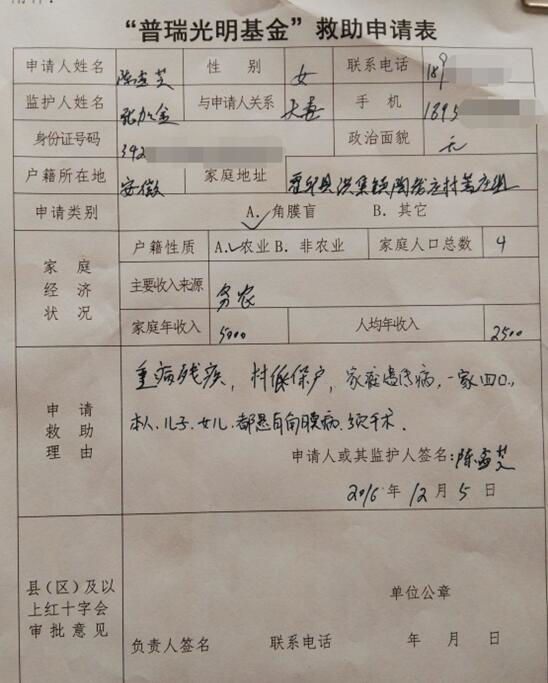 “普瑞光明基金”救助申请表
申请人姓名 陈孟芝 性 别 女 联系电话 189
监护人姓名 张 金 与申请人关系 夫妻 手 机 1895
身份证号码 342 政治面貌 无
户籍所在地 安徽 家庭地址 霍邱县洪集镇陶 庄村 庄组
申请类别 A.✓角膜盲 B.其它
家庭经济状况
户籍性质 A.✓农业 B.非农业 家庭人口总数 4
主要收入来源 务农
家庭年收入 5000 人均年收入 2500
申请救助理由
重病残疾，村低保户，家庭遗传病，一家四口、
本人、儿子、女儿、都患 病 手术.
申请人或其监护人签名:陈孟芝
2016年12月5日
县（区）及以上红十字会审批意见
单位公章
负责人签名 联系电话 年 月 日